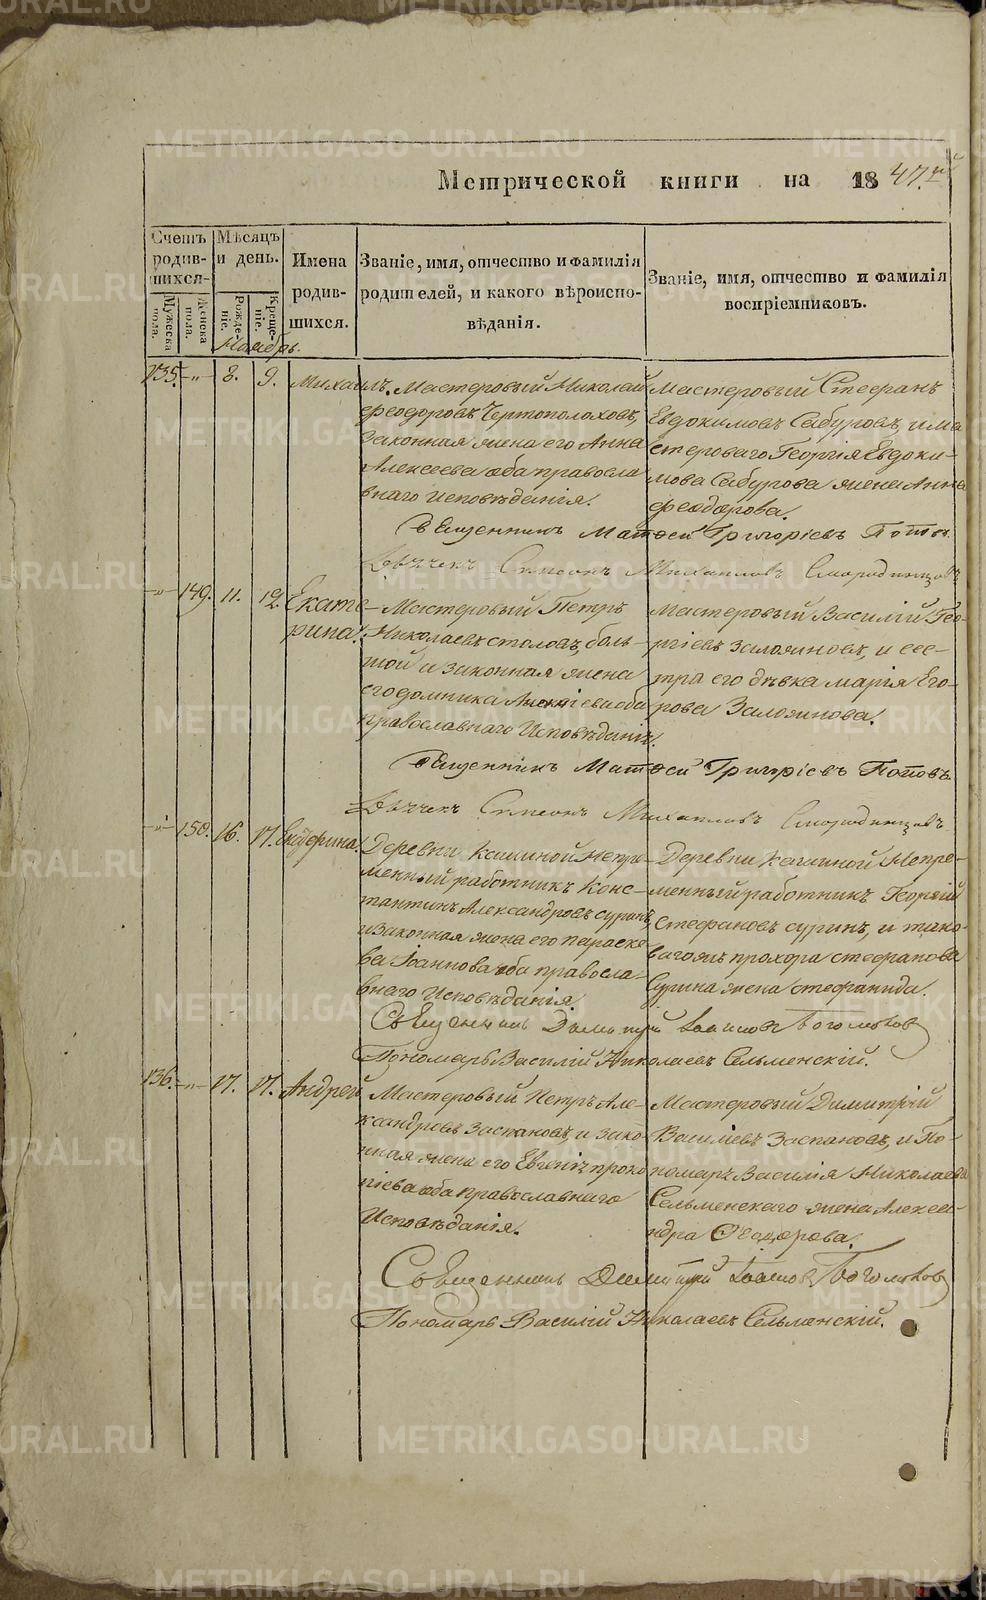 METRIKI.GASO-URAL.RU
Метрической книги на 1847й
Счетъ родив-шихся
Мѣсяцъ и день.
Имена родив-шихся.
Званіе, имя, отчество и фамилія родителей, и какого вѣроиспо-вѣданія.
Званіе, имя, отчество и фамилія воспріемниковъ.
Мужеска пола.
Женска пола.
Рожде-ніе.
Креще-ніе.
Ноябрь.
135. -"- 8. 9. Михаилъ.
Мастеровый Николай
Феодоровъ Чертополоховъ,
законная жена его Анна
Алексеева оба правосла
внаго исповѣданія.
Мастеровый Стефанъ
Евдокимовъ Сабуровъ, и ма
стероваго Георгія Евдоки-
мова Сабурова жена Анна
Феодорова.
Священникъ Матѳей Григоріевъ Попов
Дьячекъ Симеонъ Михайловъ Смородинцовъ
-"- 149. 11. 12. Екате-
рина.
Мастеровый Петръ
Николаевъ столовъ, боль-
шой и законная жена
его домника
православнаго Исповѣданія.
Мастеровый Василій Гео-
ргіевъ Заложновъ, и сес-
тра его дѣвка марія Его-
рова Заложнова.
Священникъ Матѳей Григоріевъ Поповъ
Дьячекъ Симеонъ Михайловъ Смородинцовъ
-"- 150. 16. 17. Екатерина.
Деревни Кашиной Непре-
менный работникъ Конс-
тантинъ Александровъ суринъ,
и законная жена его Параске-
ва Іоаннова оба правосла-
внаго Исповѣданія
Деревни Кашиной Непре-
менный работникъ Георгій
Стефановъ суринъ, и тако-
вагожъ прохора стефанова
Сурина жена стефанида.
Священникъ Димитрій Іоанновъ Боголюбов
Пономарь Василій Николаевъ Сельменскій.
136. -"- 17. 17. Андрей
Мастеровый Петръ Але-
ксандровъ Заспановъ, и зако-
нная жена его Евгенія проко
піева оба православнаго
Исповѣданія.
Мастеровый Димитрій
Василіевъ Заспановъ, и По-
номаря Василія Николаева
Сельменскаго жена Алекса-
ндра Ѳеодорова.
Священникъ Димитрій Іоаннов Боголюбов
Пономарь Василій Николаевъ Сельменскій.